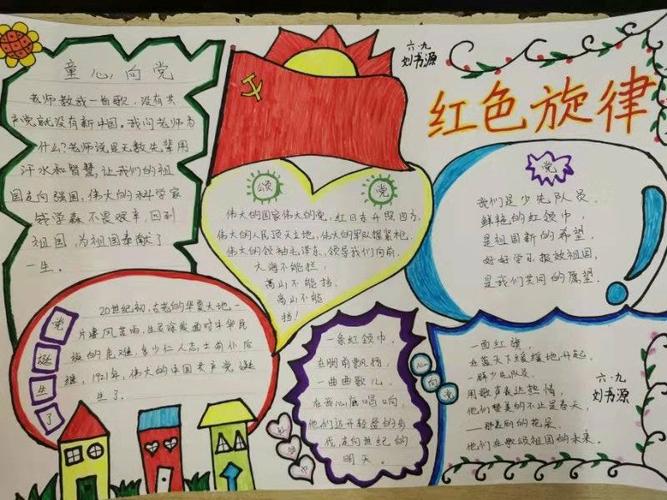 童心向党
老师教我一首歌，没有共
产党就没有新中国。我问老师为
什么？老师说是无数先辈用
汗水和智慧，让我们的祖
国走向强国，伟大的科学家
钱学森不畏艰辛，回到
祖国，为祖国奉献了
一生。
六·九
刘书源
红色旋律
颂党
伟大的国家伟大的党，红日东升照四方，
伟大的人民顶天立地，伟大的军队握紧枪，
伟大的领袖毛泽东，领导我们向前，
大海不能拦，
高山不能挡，
高山不能
挡！
党
我们是少先队员，
鲜艳的红领巾，
是祖国新的希望，
好好学习报效祖国，
是我们共同的愿望。
党诞生了
20世纪初，古老的华夏大地，一
片凄风苦雨，生死存亡面对中华民
族的危难，多少仁人志士前仆后
继，1921年，伟大的中国共产党诞
生了。
一条红领巾，
在胸前飘扬，
一曲曲歌儿，
在我心底唱响，
他们迈开轻盈的步
伐，走向世纪的
明天。
心向党
一面红旗，
在蓝天下缓缓地升起，
一群少先队员，
用歌声表达热情，
他们赞美的不止是春天，
一群美丽的花朵，
他们在歌颂祖国的未来。
六·九
刘书源